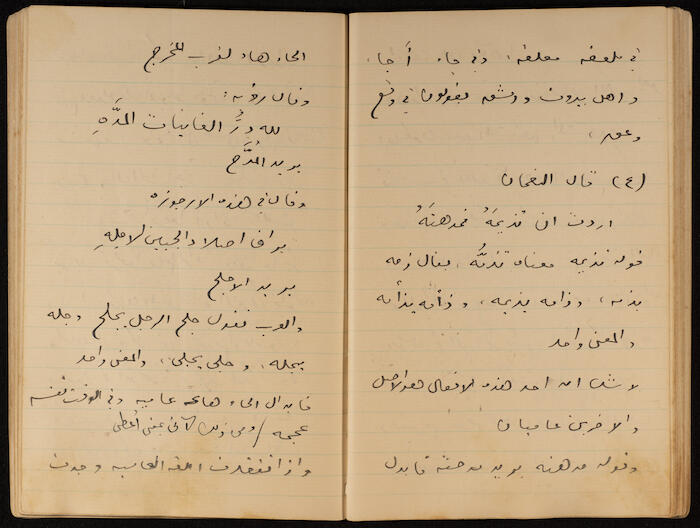 في بلعقه معلقه، وفي جاء أجا،
واهل بيروت ودمشق يقولون في وقع
وعق،
(٤) قال النعمان
اردت ان تذيمَهُ فمدهتَهُ
قوله تذيمه معناه تذمُّه، يقال ذمه
يذمه، وذامه يذيمه، وذأمه يذأمه
والمعنى واحد
لا شك ان احد هذه الافعال هو الاصل
والاخرين عاميان
وقوله مدهته يريد مدحته فابدل
الحاء هاء لقرب المخرج
وقال رؤبه:
لله درُّ الغانيات المدَّهِ
يريد المُدَّح
وقال في هذه الارجوزه
براق اصلاد الجبين الاجلهِ
يريد الاجلح
والعرب تقول جلح الرجل يجلح وجله
يجله، وجلى يجلى، والمعنى واحد
فابدال الحاء هاء عاميه وفي الوقت نفسه
واذا تفقدت اللغه العاميه وجدت